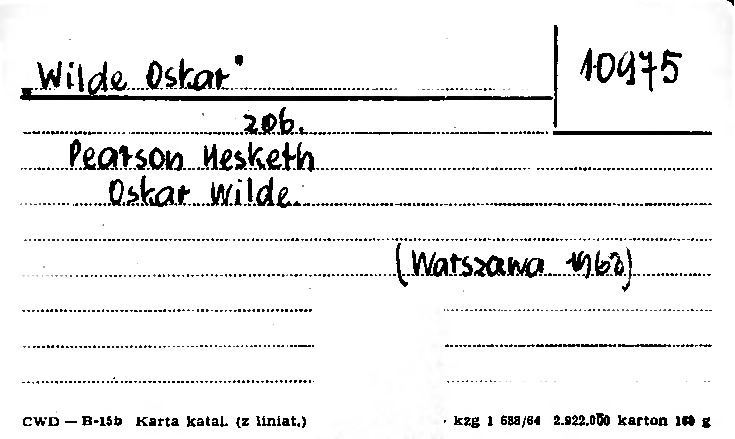 „Wilde Oskar"
10975
zob.
Pearson Hesketh
Oskar Wilde.
(Warszawa 1963)
CWD — B-15b Karta katal. (z liniat.)
kzg 1 688/64 2.922.000 karton 160 g